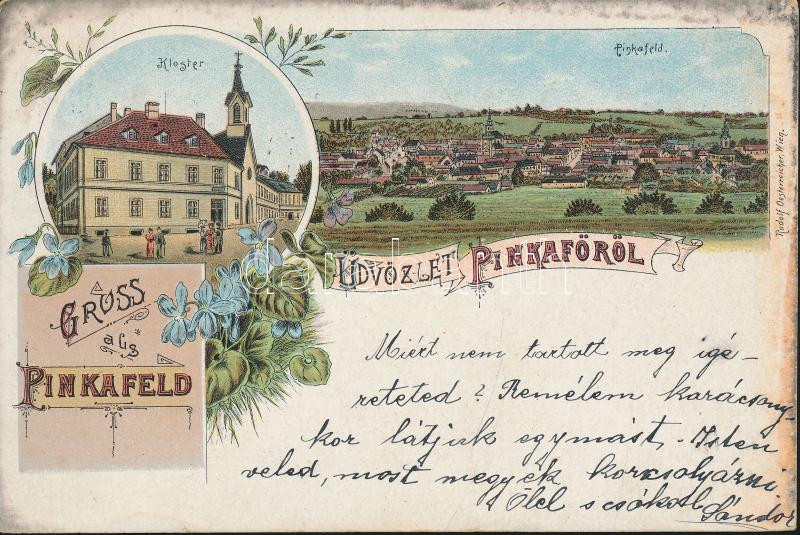 Kloster
Pinkafeld.
Rudolf Oesterreicher, Wien.
ÜDVÖZLET PINKAFÖRÖL
GRUSS
aus
PINKAFELD
Miért nem tartott meg igé-
reteted? Remélem karácsony-
kor látjuk egymást. Isten
veled, most megyek korcsolyázni
Ölel s csókol
Sándor